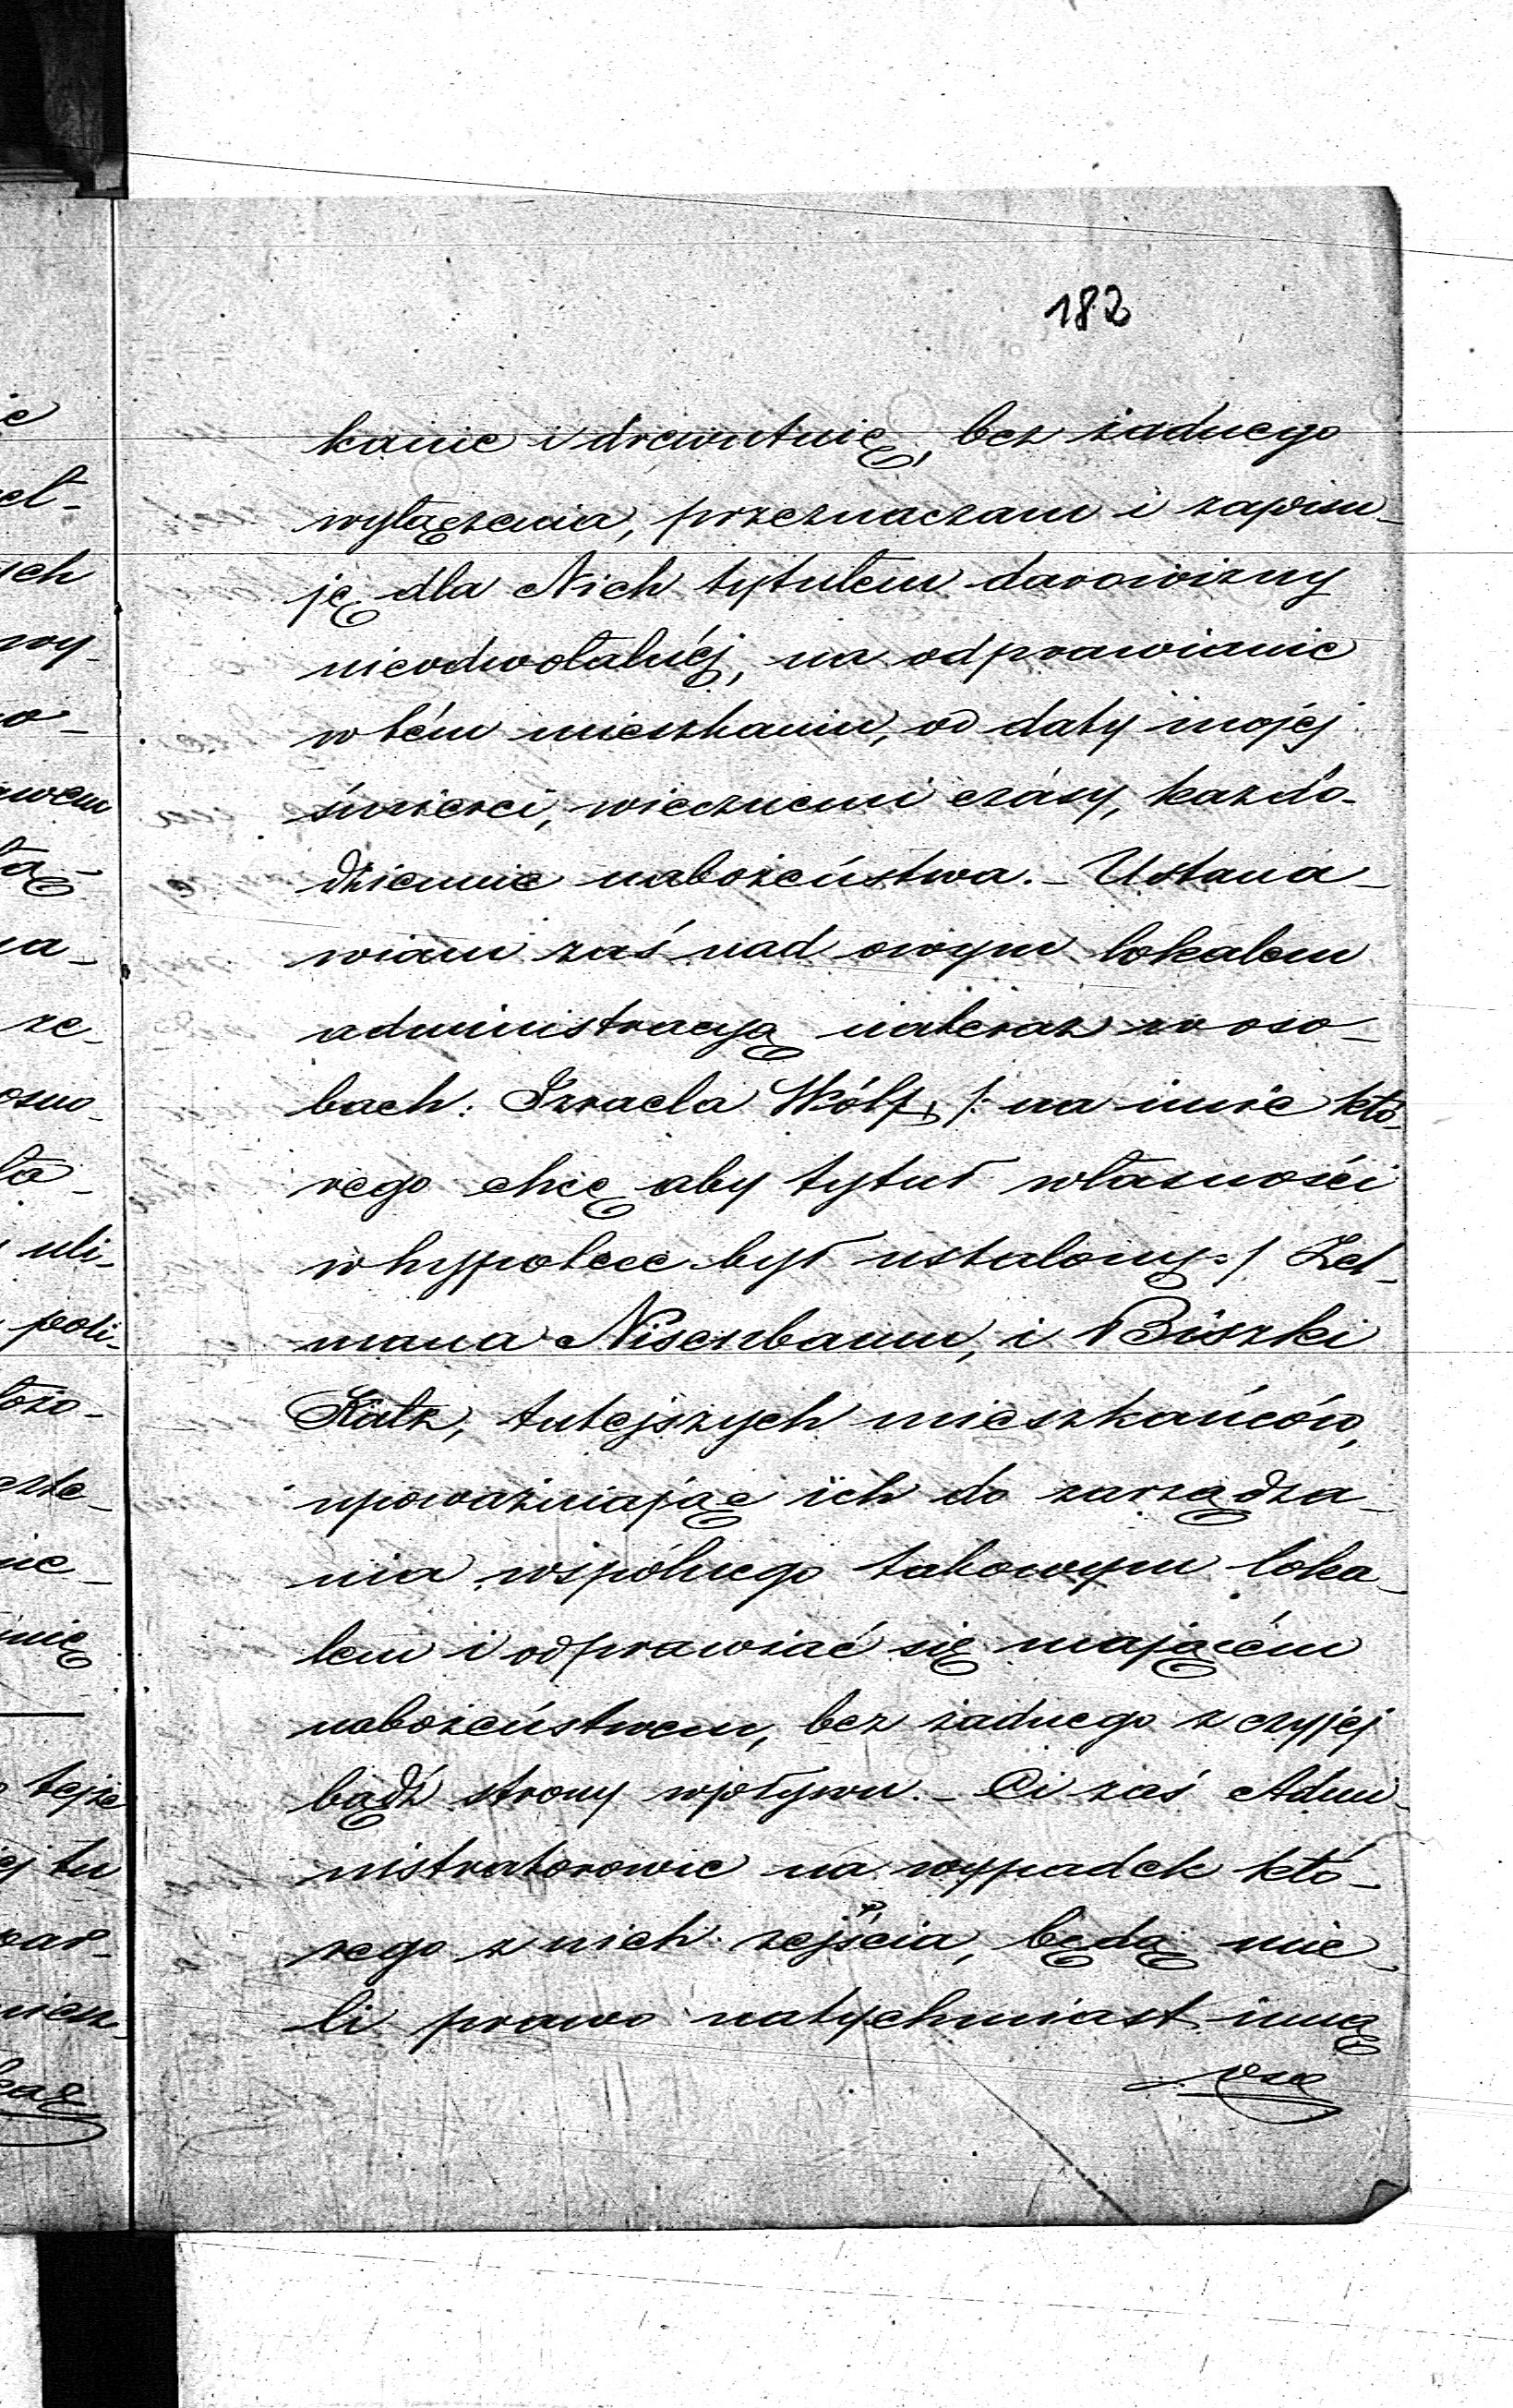 182
kanie i drewutnię, bez żadnego
wyłączenia, przeznaczam i zapisu-
ję dla Nich tytułem darowizny
nieodwołalnéj, na odprawianie
w tém mieszkaniu, od daty mojéj
śmierci, wiecznemi czásy, każdo-
dziennie nabożeństwa. - Ustana-
wiam zaś nad owym lokalem
administracyą natéraz w oso-
bach: Izraela Wólf, /: na imie któ-
rego chcę aby tytuł własności
w hyppotece był ustalony :/ Zel-
mana Nisenbaum, i Biszki
Katz, tutejszych mieszkańców,
upoważniając ich do zarządza-
nia wspólnego takowym loka-
lem i odprawiać się mającém
nabożeństwem, bez żadnego z czyjej
bądź strony wpływu. - Ci zaś Admi-
nistratorowie na wypadek któ-
rego z nich zejścia, będą mie-
li prawo natychmiast inną
oso
ie
ych
wy-
awem
ła
na-
ze-
osno-
ła-
uli-
poli-
łożo-
nie-
tejże
ej tu
war-
miesz-